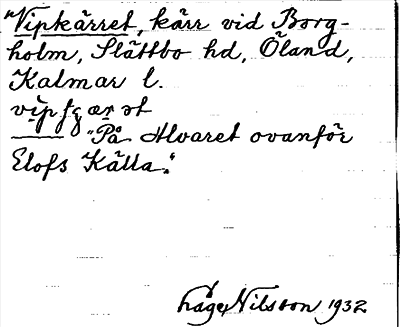 "Vipkärret, kärr vid Borg-
holm, Slättbo hd, Öland,
Kalmar l.
"På Alvaret ovanför
Elofs Källa."
Nilsson 1932